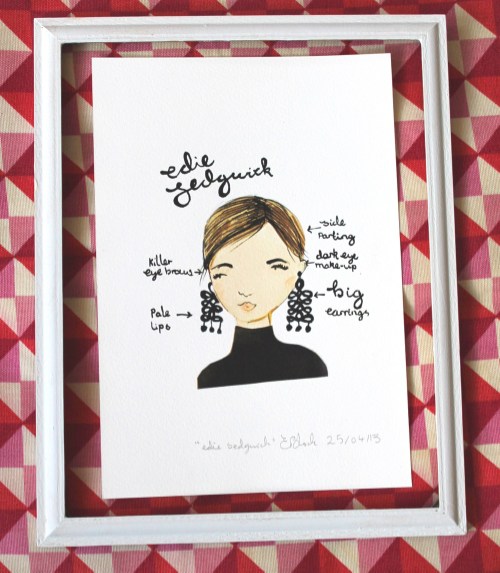 edie
sedgwick
side
parting
killer
eye brows
dark eye
make-up
Pale
lips
big
earrings
"edie sedgwick" 25/04/13